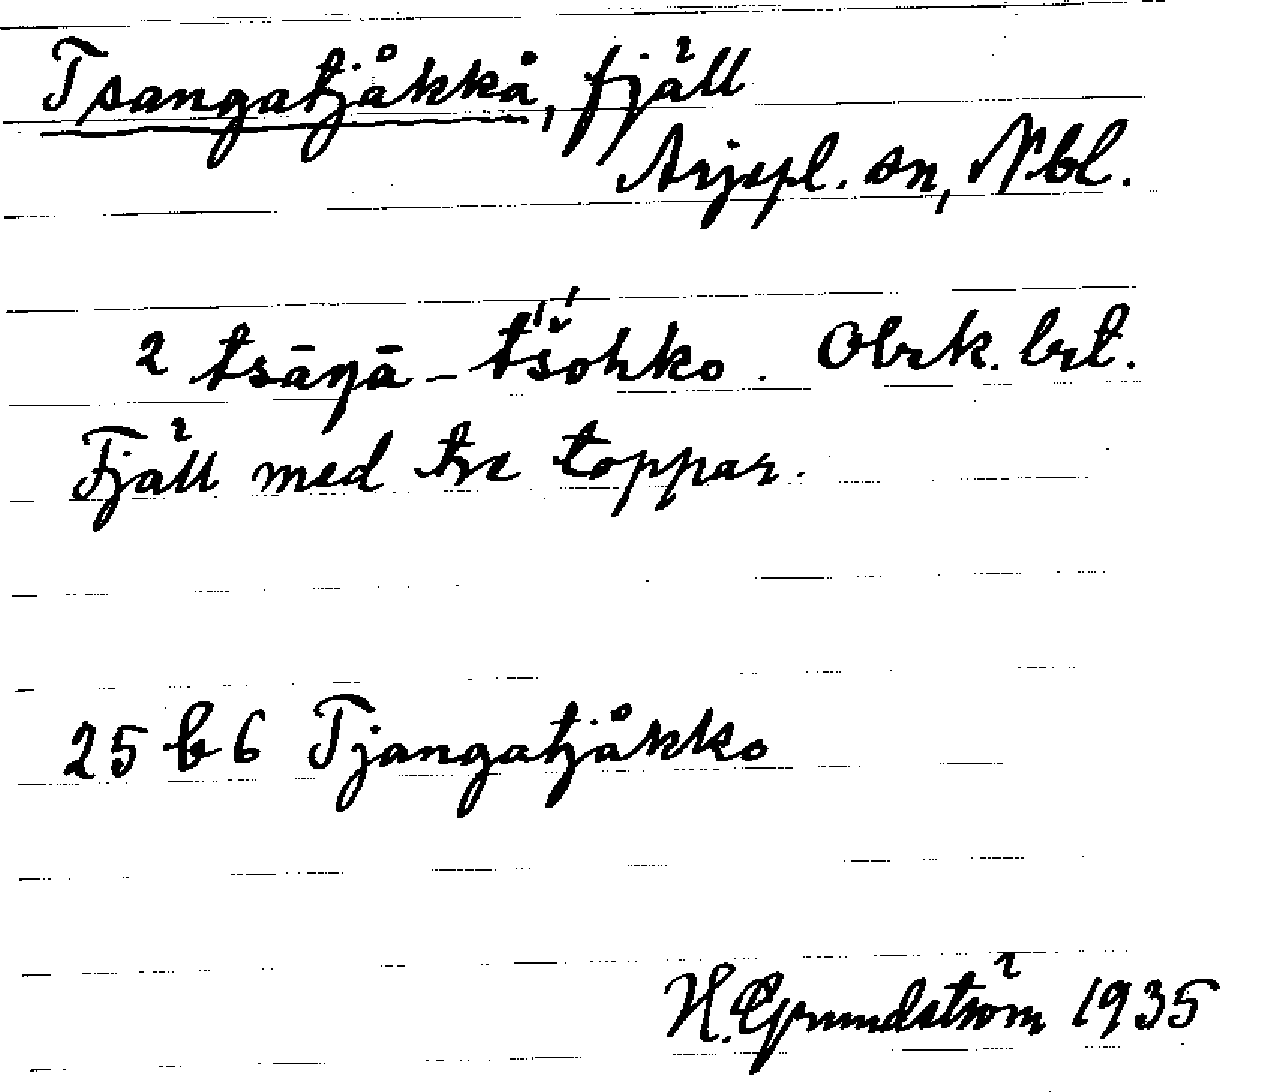 Tsangatjåkkå, fjäll
Arjepl. sn, Nbl.
2 tsāŋā - t́š́ohko. Obrk. brt.
Fjäll med tre toppar.
25 b 6 Tjangatjåkko
H. Grundström 1935